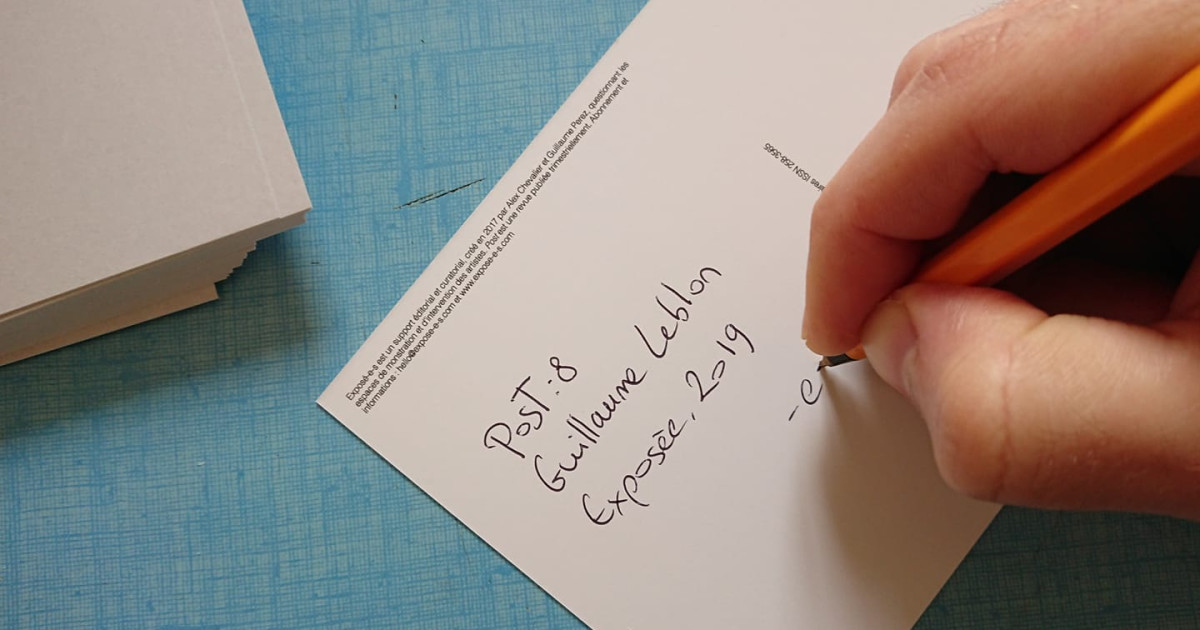 Exposé-e-s est un support éditorial et curatorial, créé en 2017 par Alex Chevalier et Guillaume Perez, questionnant les
espaces de monstration et d'intervention des artistes. Post est une revue publiée trimestriellement. Abonnement et
informations : hello@expose-e-s.com et www.expose-e-s.com
ISSN 258-3565
Post:8
Guillaume Leblon
Exposée, 2019
-e